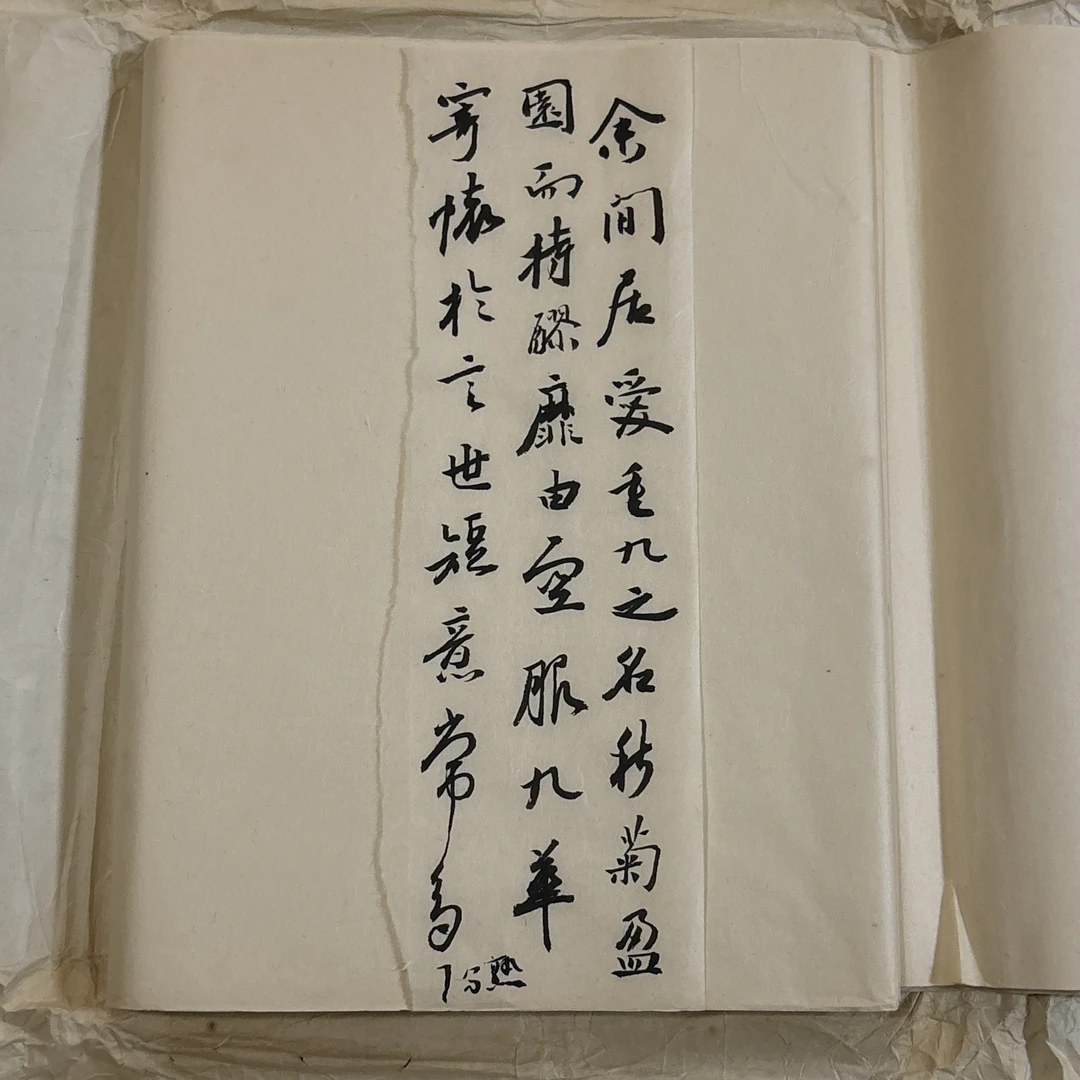 余間居愛重九之名秋菊盈
園而持醪靡由空服九華
寄懷於言世短意常